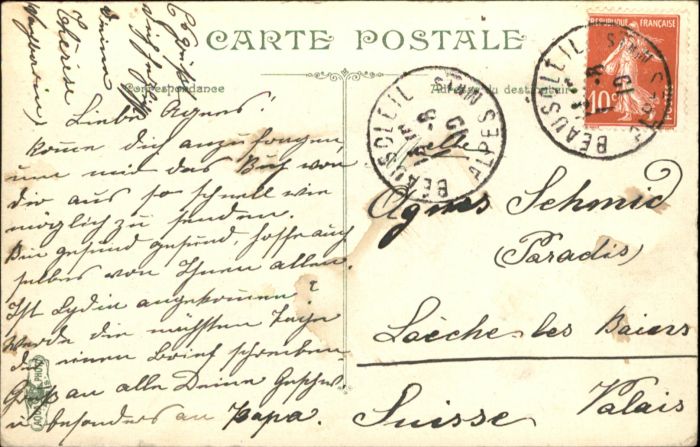 CARTE POSTALE
Correspondance
Adresse du destinataire
RÉPUBLIQUE FRANÇAISE
10c
BEAUSOLEIL
ALPES MMES
BEAUSOLEIL
ALPES MMES
Liebe Agnes!
komme dich anzufragen,
um mir das Buch von
dir aus so schnell wie
möglich zu senden.
Bin gesund gesund, hoffe auch
selbes von Ihnen allen.
Ist Lydia angekommen?
Werde die nächsten Tage
dir einen Brief schreiben
Gruß an alle Deine Geschw.
u besonders an Papa.
deine
Thérèse
Mlle
Agnes Schmid
(Paradis)
Loèche-les Bains
Valais
Suisse